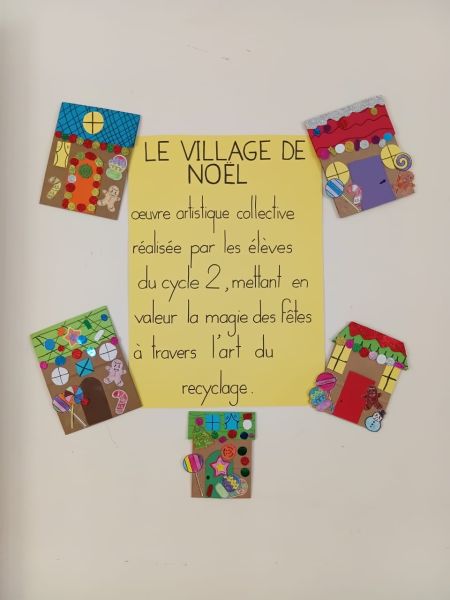 LE VILLAGE DE
NOËL
œuvre artistique collective
réalisée par les élèves
du cycle 2, mettant en
valeur la magie des fêtes
à travers l'art du
recyclage.